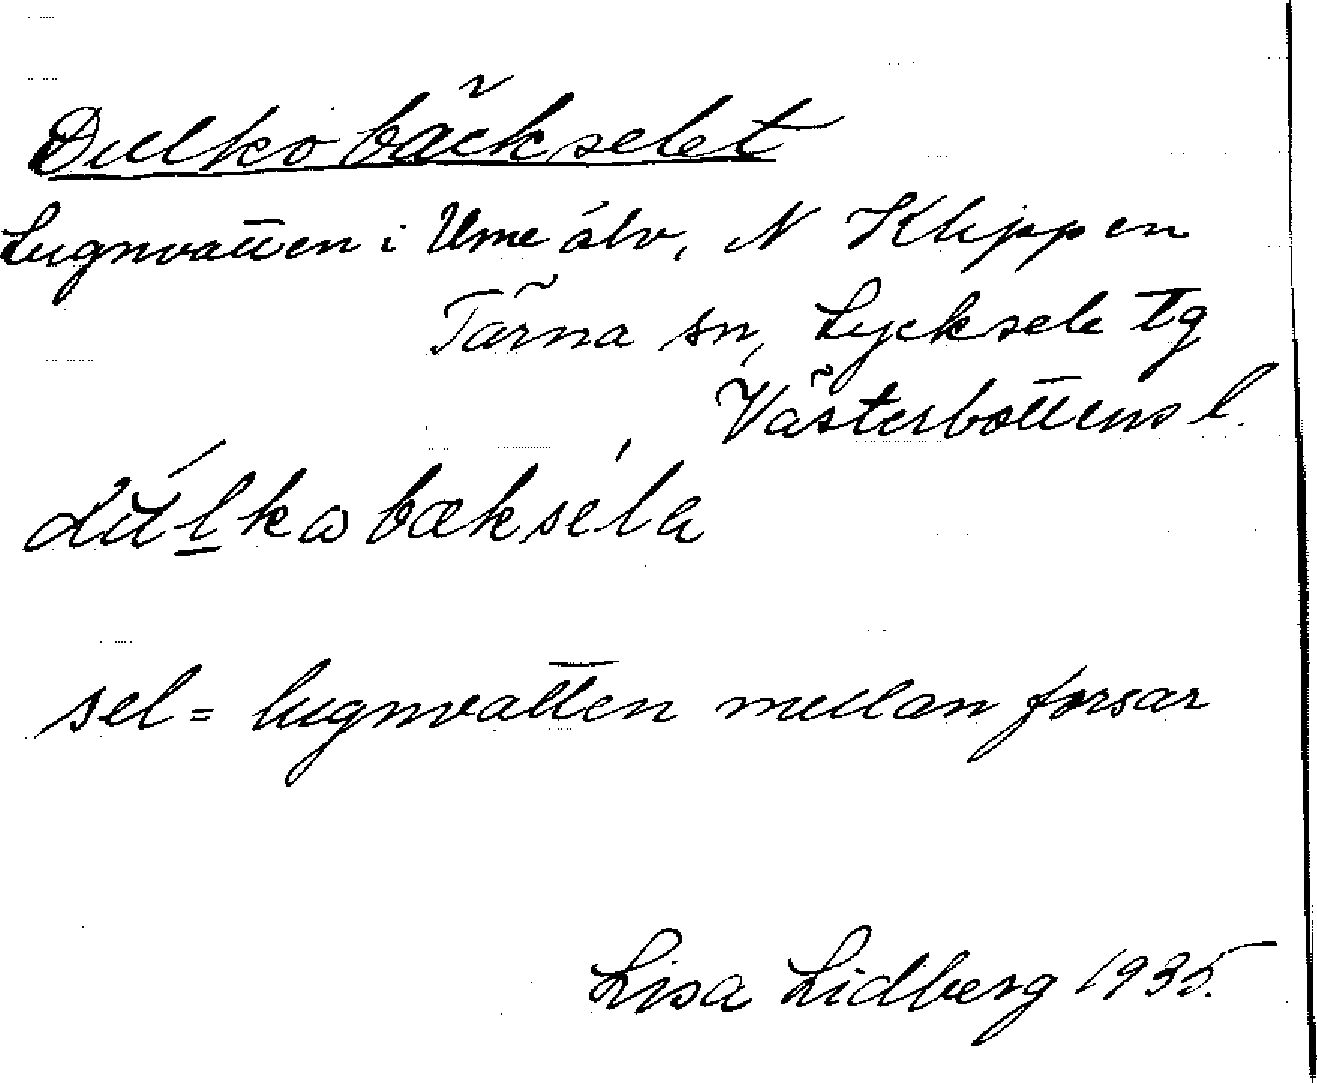 Dulkobäckselet
Lugnvatten i Ume älv, N Klippen
Tärna sn, Lycksele tg
Västerbottens l.
dúlkabæksela
sel = lugnvatten mellan forsar
Lisa Lidberg 1935.